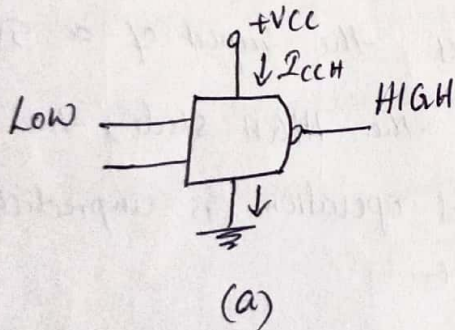 +VCC
↓ ICCH
LOW
HIGH
(a)